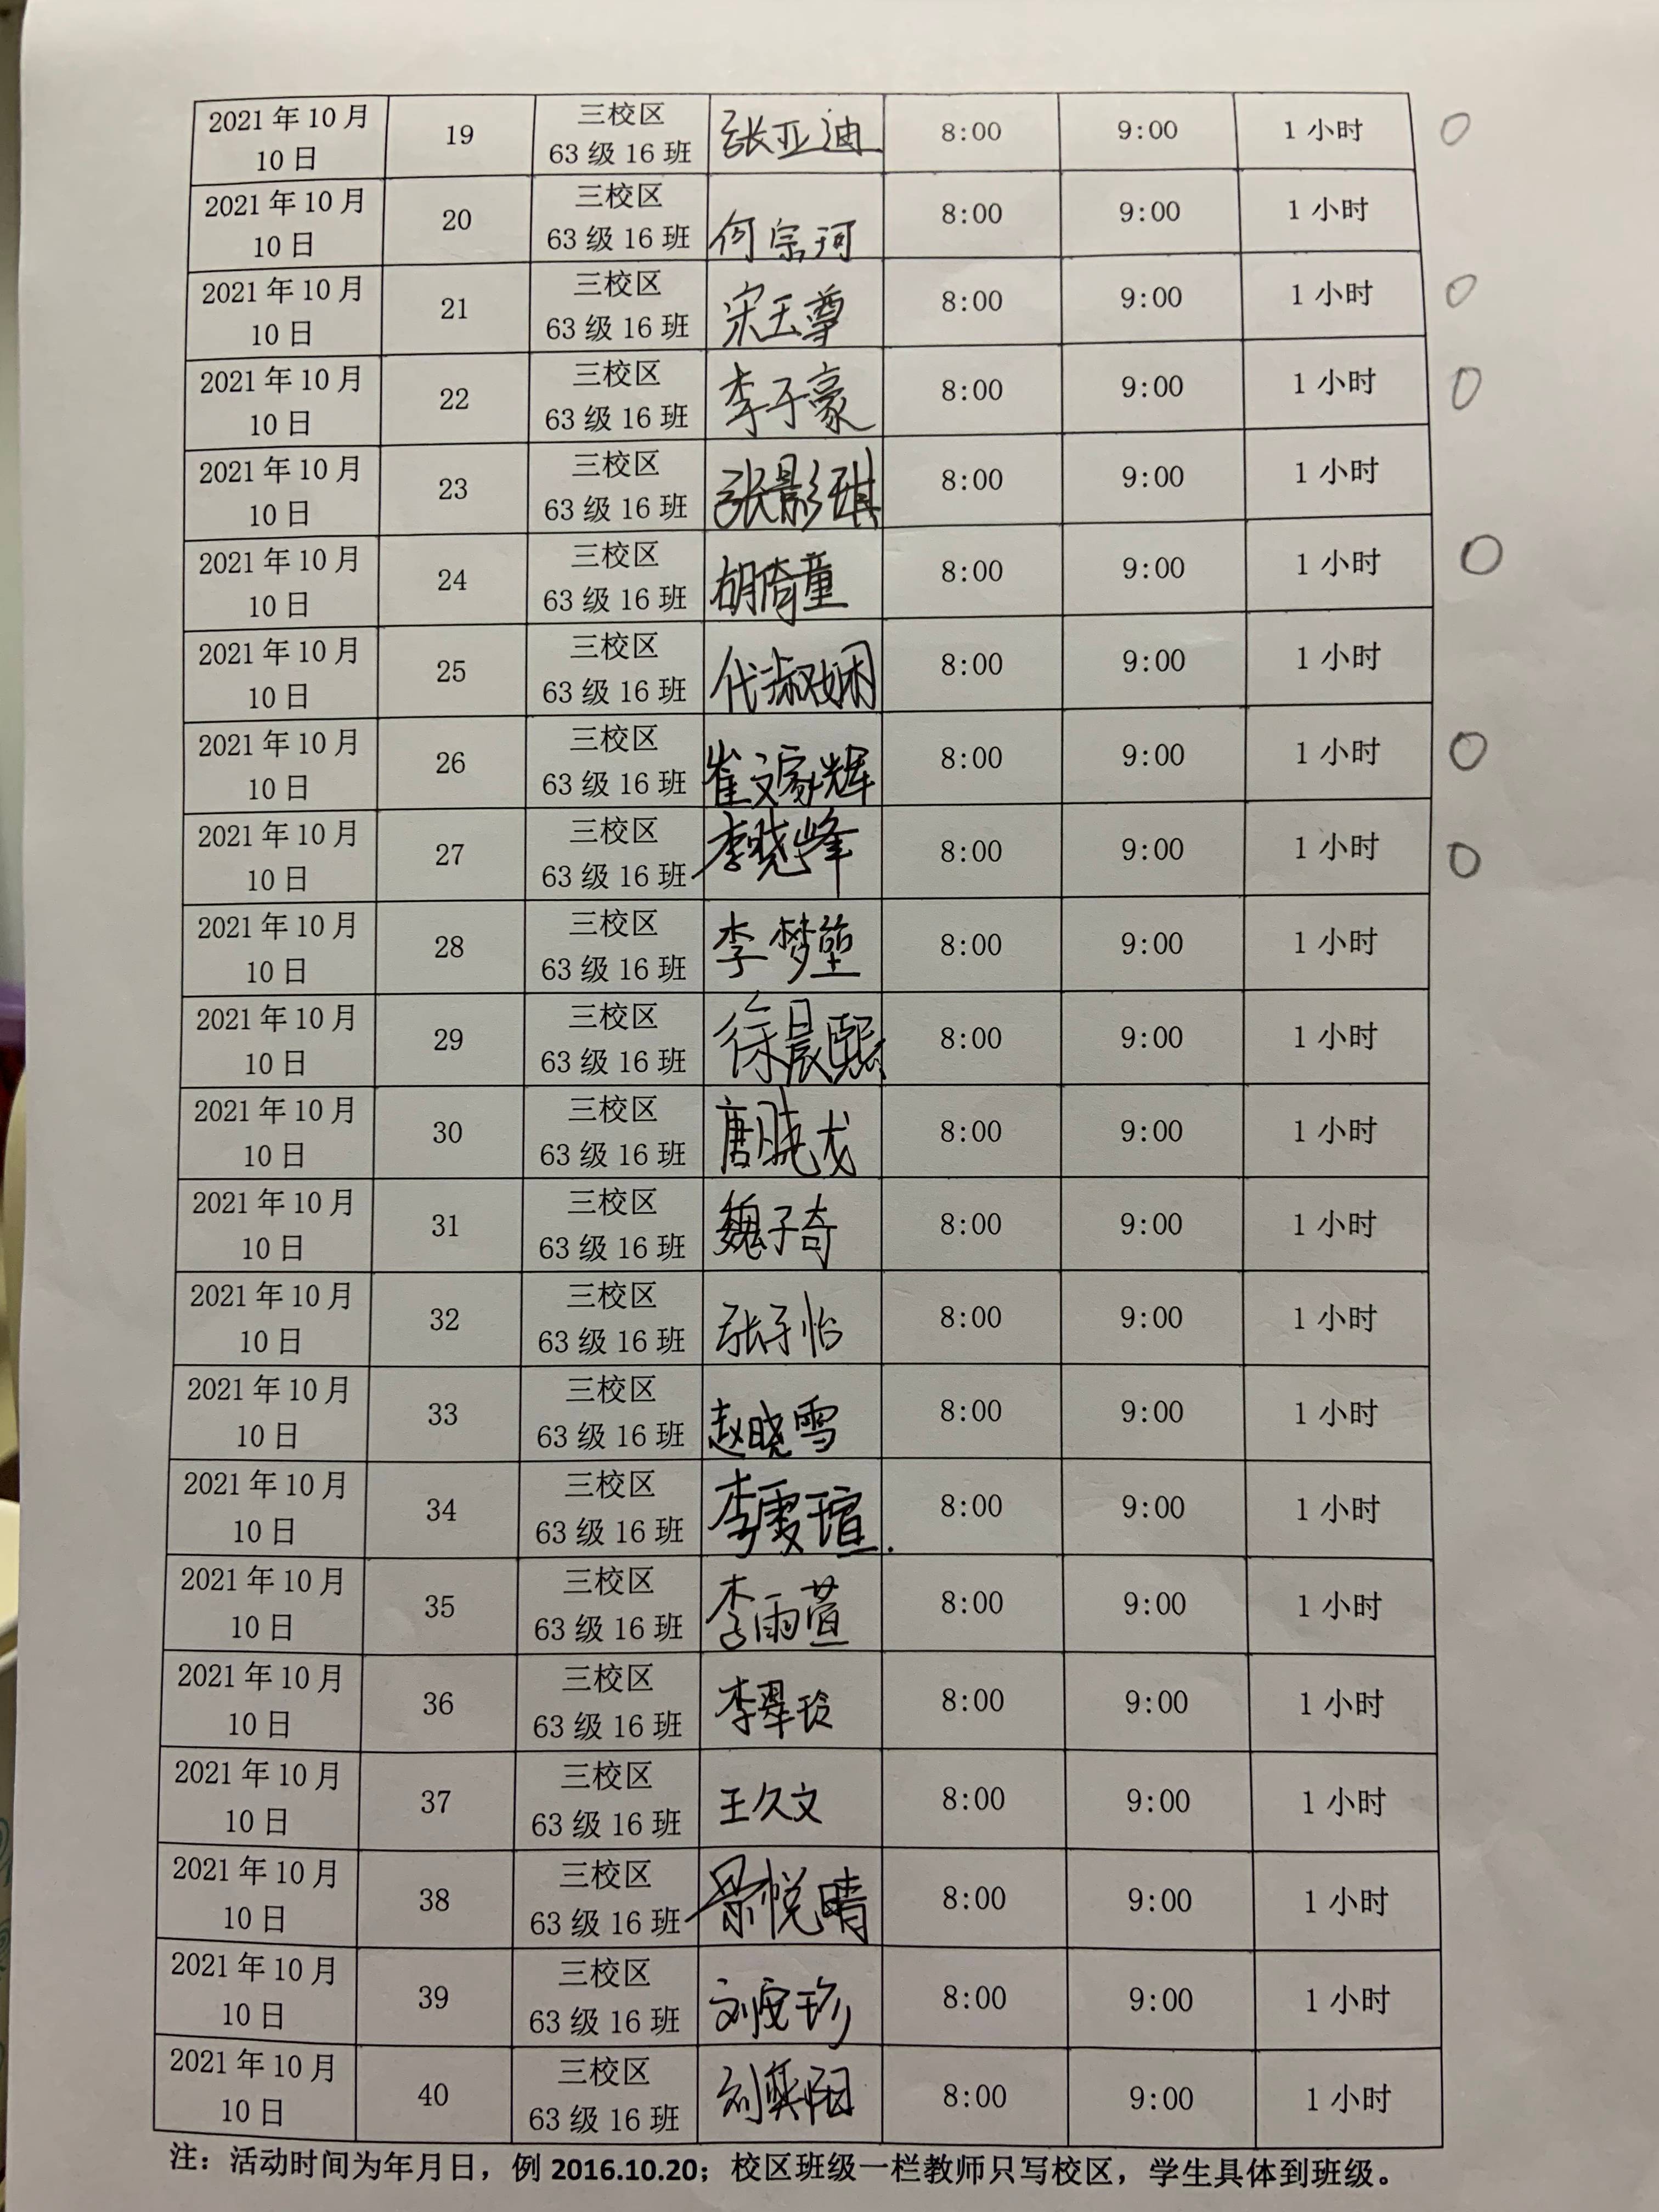 2021 年 10 月 10 日 19 三校区 63 级 16 班 张亚迪 8:00 9:00 1 小时
2021 年 10 月 10 日 20 三校区 63 级 16 班 何宗珂 8:00 9:00 1 小时
2021 年 10 月 10 日 21 三校区 63 级 16 班 宋玉尊 8:00 9:00 1 小时
2021 年 10 月 10 日 22 三校区 63 级 16 班 李子豪 8:00 9:00 1 小时
2021 年 10 月 10 日 23 三校区 63 级 16 班 张影琪 8:00 9:00 1 小时
2021 年 10 月 10 日 24 三校区 63 级 16 班 胡倚童 8:00 9:00 1 小时
2021 年 10 月 10 日 25 三校区 63 级 16 班 代淑娴 8:00 9:00 1 小时
2021 年 10 月 10 日 26 三校区 63 级 16 班 崔文豪辉 8:00 9:00 1 小时
2021 年 10 月 10 日 27 三校区 63 级 16 班 李晓峰 8:00 9:00 1 小时
2021 年 10 月 10 日 28 三校区 63 级 16 班 李梦堃 8:00 9:00 1 小时
2021 年 10 月 10 日 29 三校区 63 级 16 班 徐晨熙 8:00 9:00 1 小时
2021 年 10 月 10 日 30 三校区 63 级 16 班 唐晓龙 8:00 9:00 1 小时
2021 年 10 月 10 日 31 三校区 63 级 16 班 魏子奇 8:00 9:00 1 小时
2021 年 10 月 10 日 32 三校区 63 级 16 班 张子怡 8:00 9:00 1 小时
2021 年 10 月 10 日 33 三校区 63 级 16 班 赵晓雪 8:00 9:00 1 小时
2021 年 10 月 10 日 34 三校区 63 级 16 班 李雯瑄 8:00 9:00 1 小时
2021 年 10 月 10 日 35 三校区 63 级 16 班 李雨萱 8:00 9:00 1 小时
2021 年 10 月 10 日 36 三校区 63 级 16 班 李翠玲 8:00 9:00 1 小时
2021 年 10 月 10 日 37 三校区 63 级 16 班 王久文 8:00 9:00 1 小时
2021 年 10 月 10 日 38 三校区 63 级 16 班 景悦晴 8:00 9:00 1 小时
2021 年 10 月 10 日 39 三校区 63 级 16 班 8:00 9:00 1 小时
2021 年 10 月 10 日 40 三校区 63 级 16 班 刘奕阳 8:00 9:00 1 小时
注：活动时间为年月日，例 2016.10.20；校区班级一栏教师只写校区，学生具体到班级。